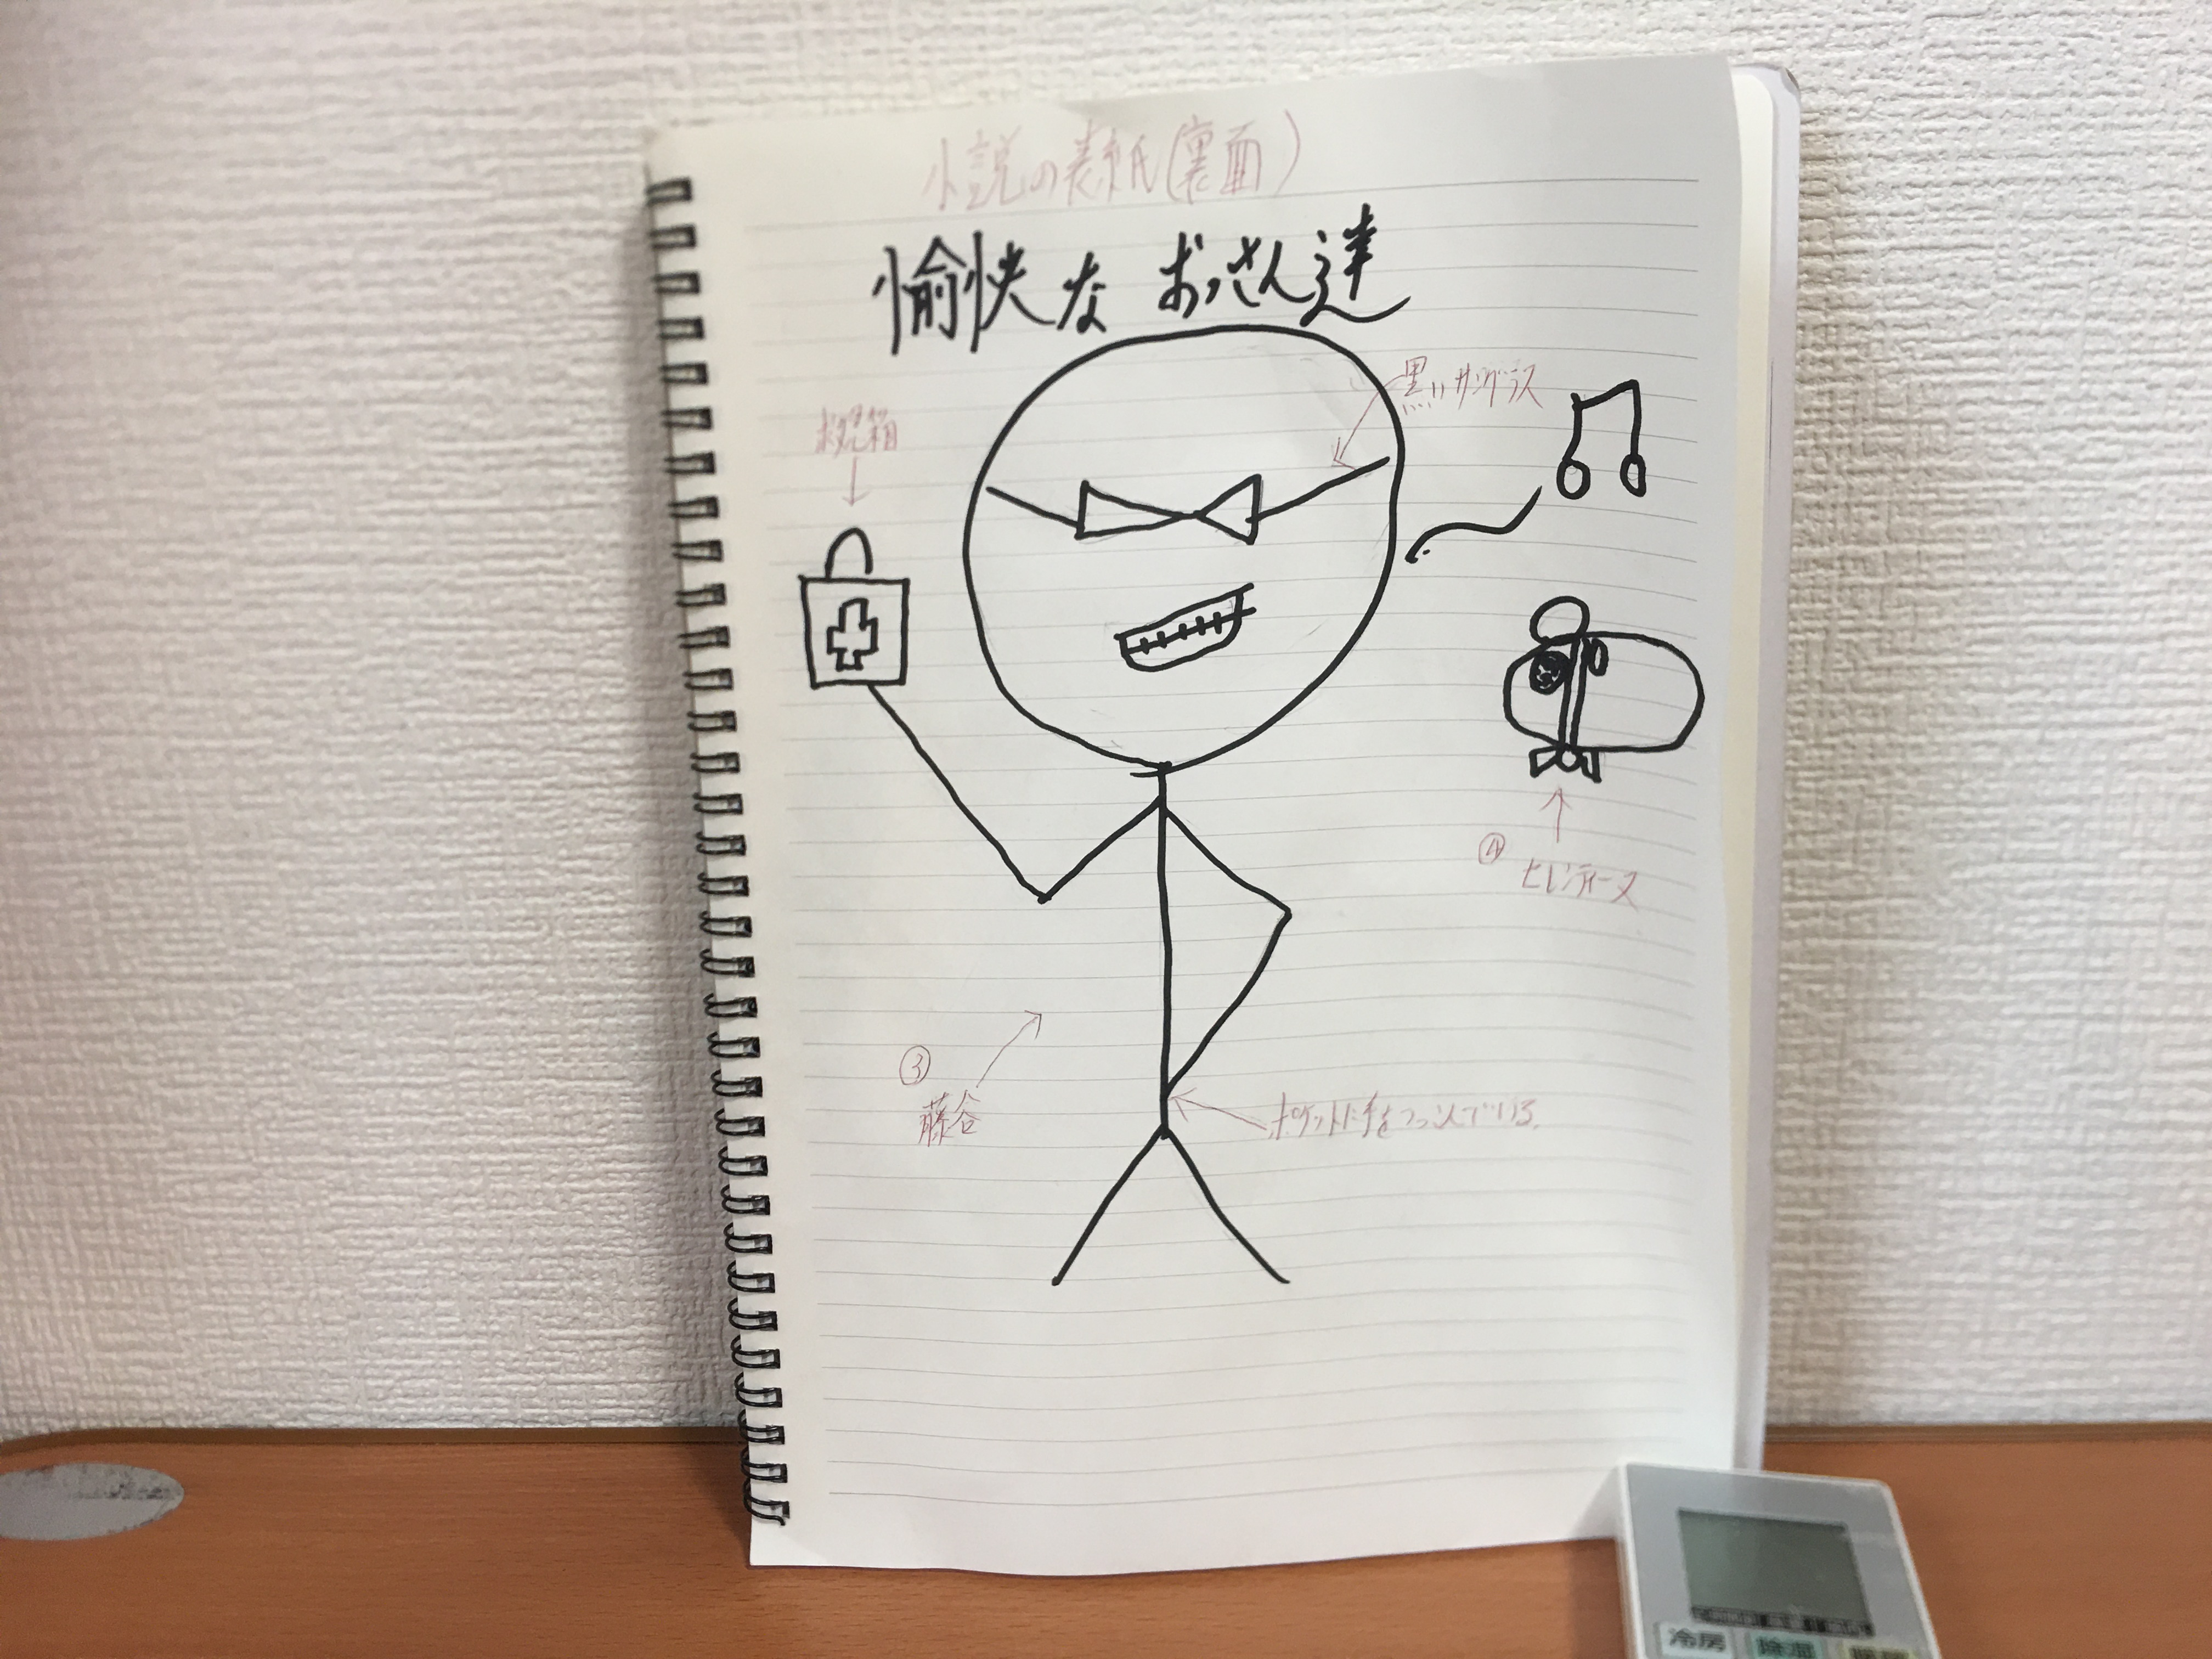 小説の表紙(裏面)
愉快なおっさん達
黒いサングラス
救急箱
④
ヒレンディーヌ
③
藤谷
ポケットに手をつっこんでいる。
冷房
除湿
暖房